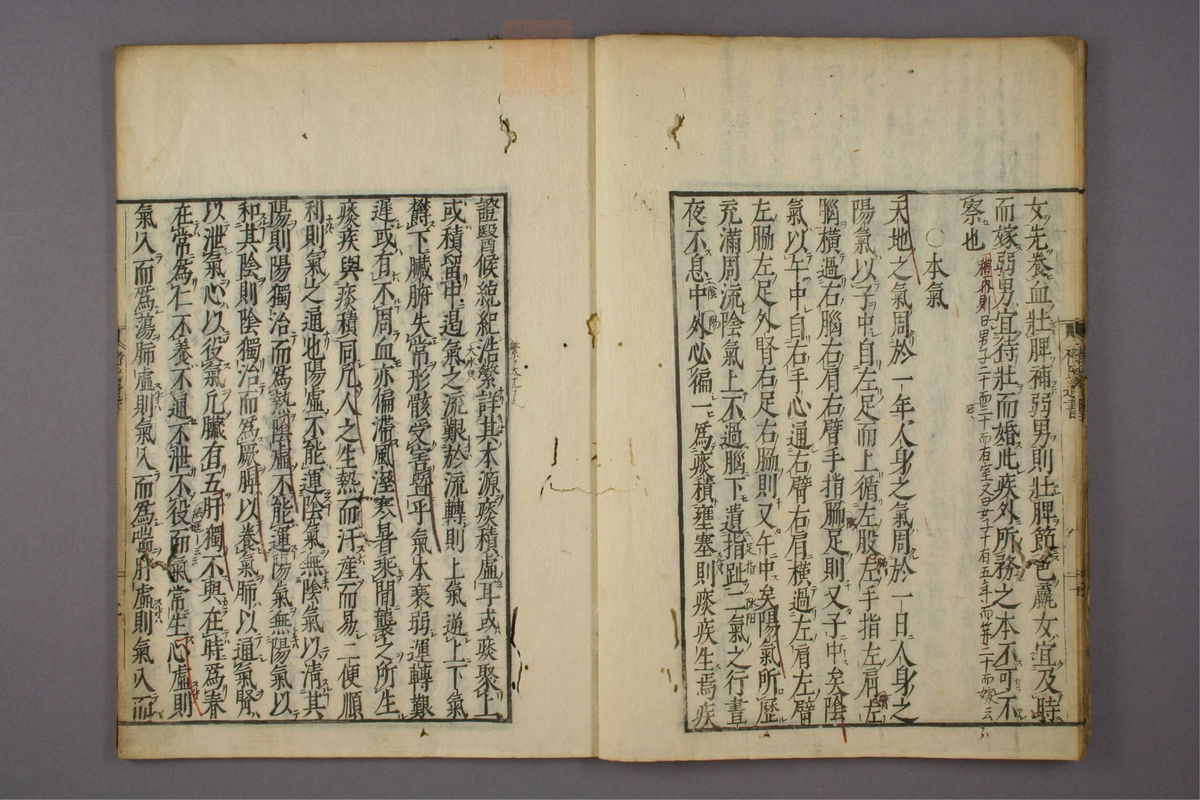 女先養血壯脾補弱男則壯脾節色羸女宜及時
而嫁弱男宜待壯而婚此疾外所務之本不可不
察也
〇本氣
天地之氣周於一年人身之氣周於一日人身之
陽氣以子中自左足而上循左股左手指左肩左
腦橫過右腦右肩右臂手指脇足則又子中矣陰
氣以午中自右手心通右臂右肩橫過左肩左臂
左脇左足外腎右足右脇則又午中矣陽氣所歷
充滿周流陰氣上不過腦下遺指趾二氣之行晝
夜不息中外必徧一爲痰積壅塞則痰疾生焉疾
證醫候統紀浩繁詳其本源痰積虛耳或痰聚上
或積留中遏氣之流艱於流轉則上氣逆上下氣
欝下臟腑失常形骸受害曁乎氣本衰弱運轉艱
遲或有不周血亦偏滯風溼寒暑乘間襲之所生
痰疾與痰積同凡人之生熱而汗產而易二便順
利則氣之通也陽虛不能運陰氣無陰氣以淸其
陽則陽獨治而爲熱陰虛不能運陽氣無陽氣以
和其陰則陰獨治而爲厥脾以養氣肺以通氣腎
以泄氣心以役氣凡臟有五肝獨不與在時爲春
在常爲仁不養不通不泄不役而氣常生心虛則
氣入而爲蕩肺虛則氣入而爲喘肝虛則氣入而